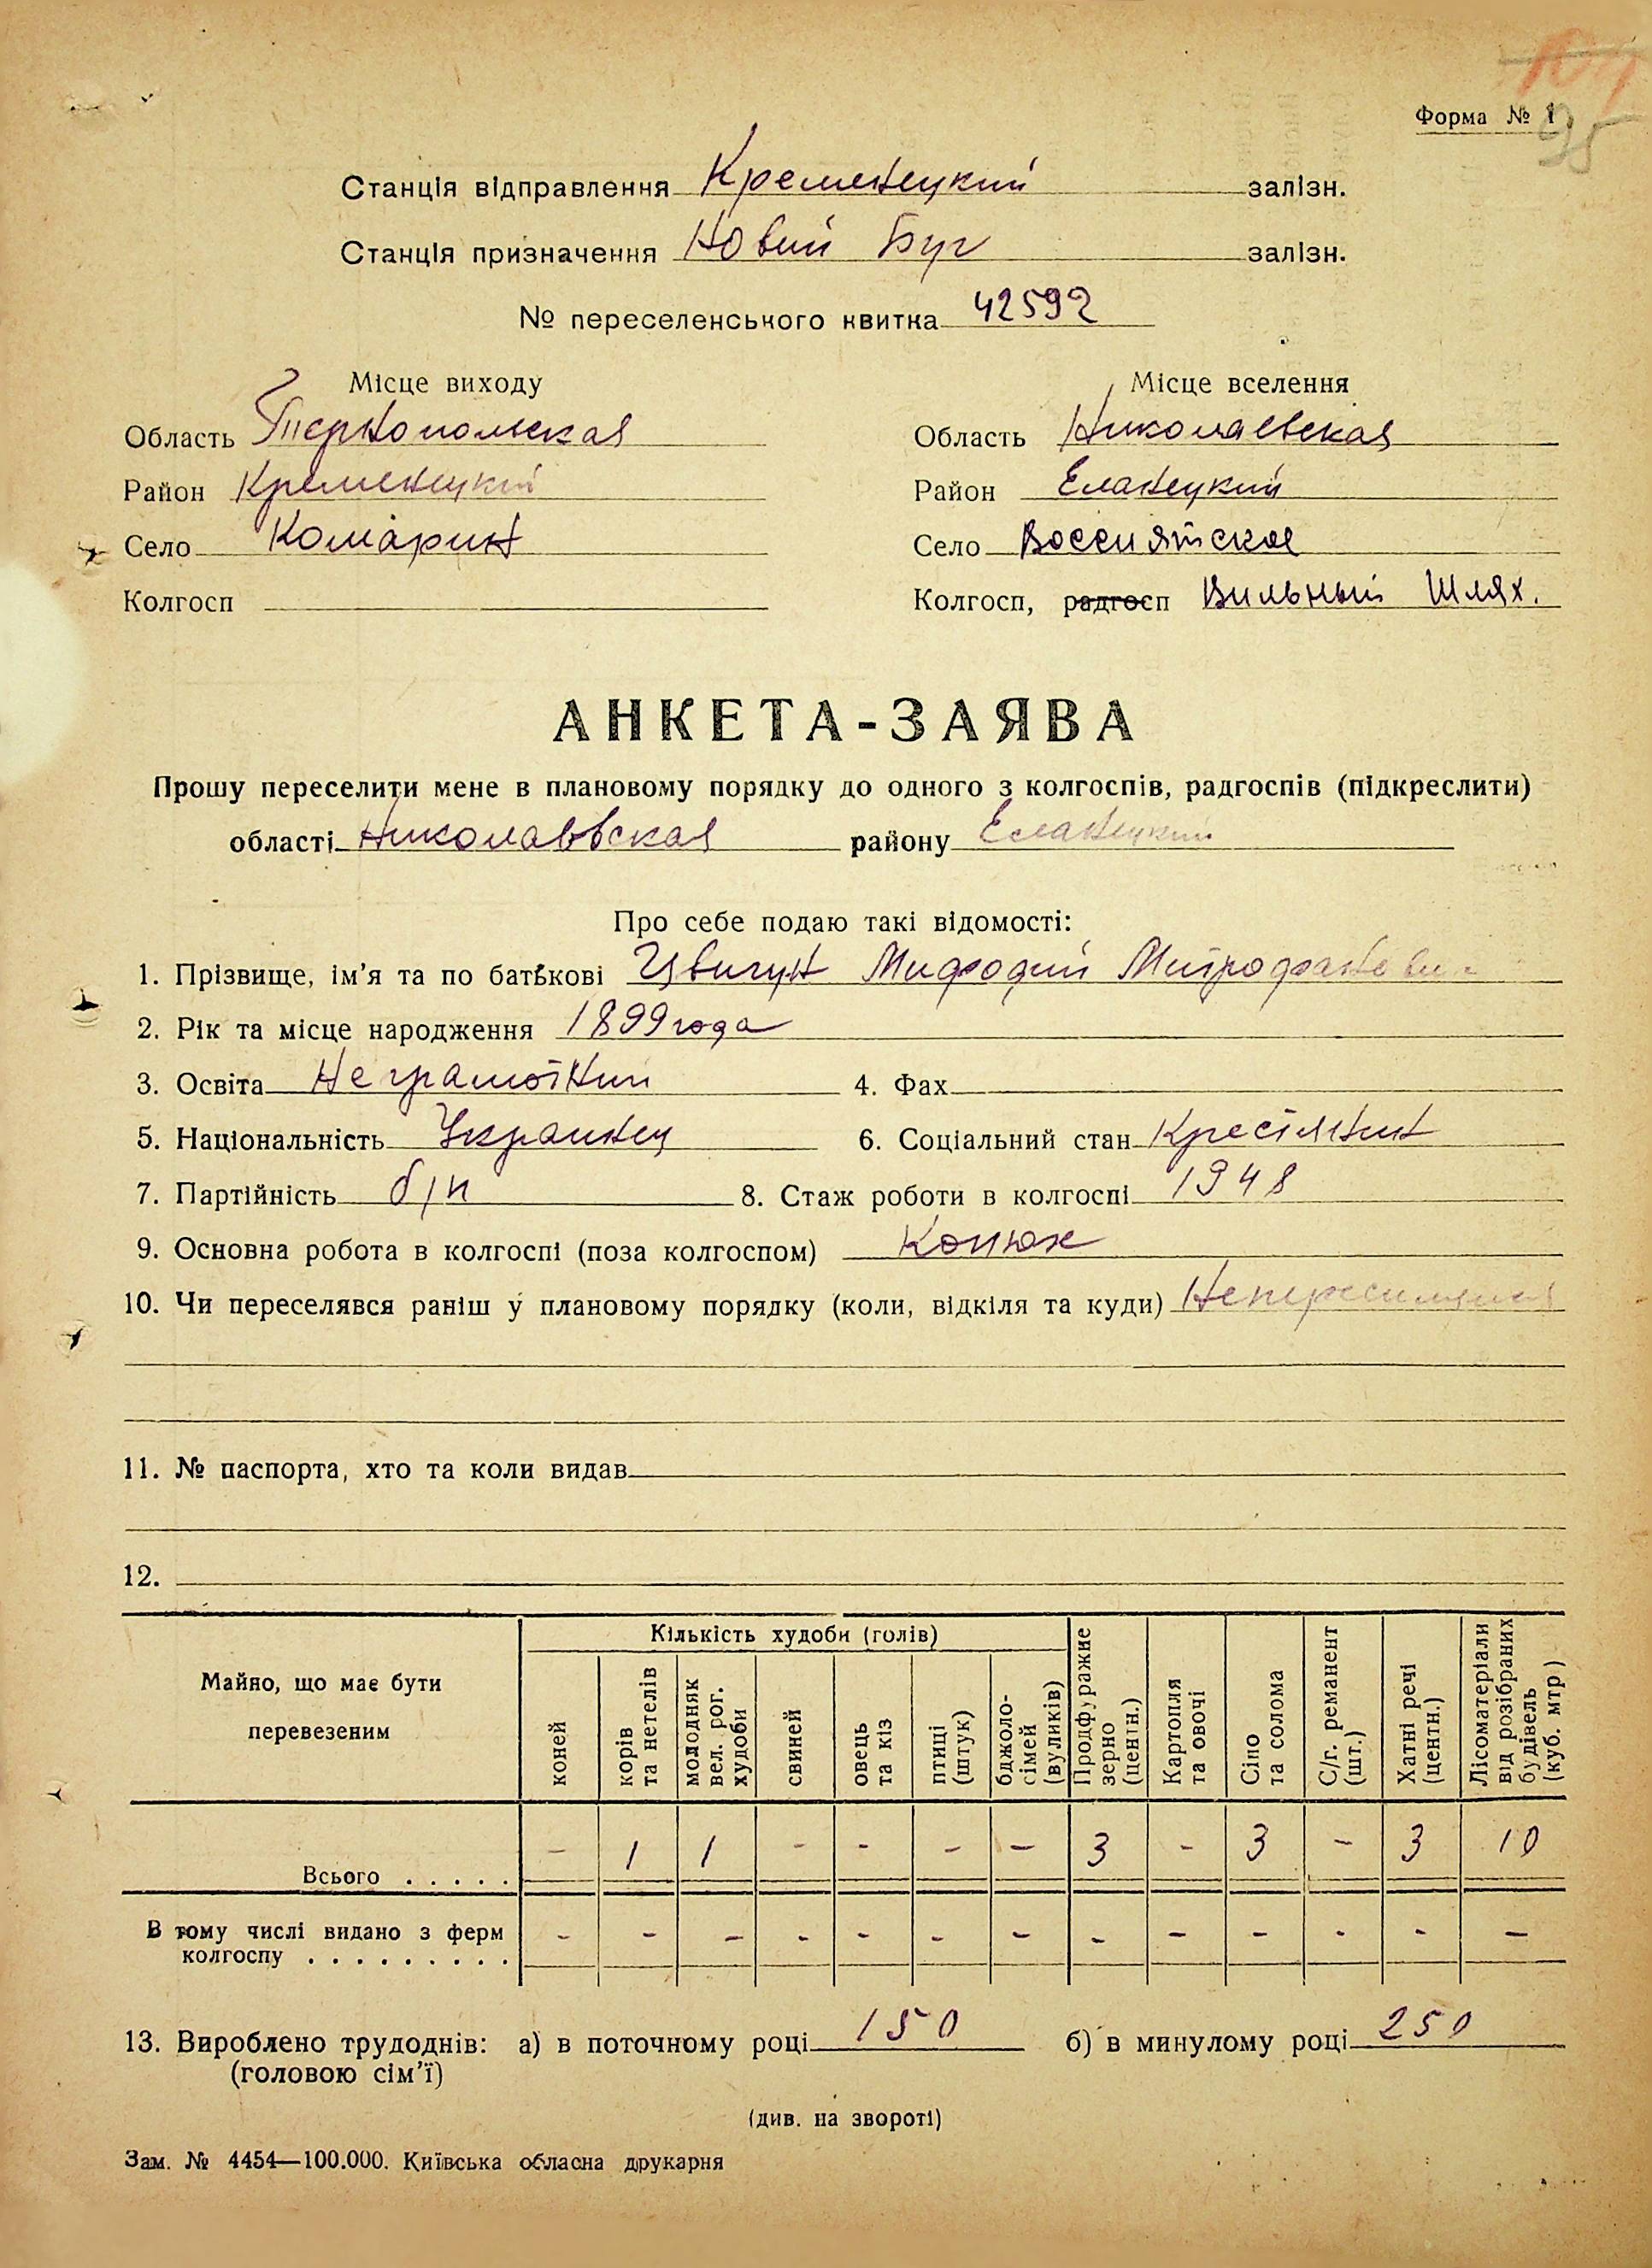 104
Форма № 1
95
Станція відправлення Кременецкий залізн.
Станція призначення Новий Буг залізн.
№ переселенського квитка 42592
Місце виходу Місце вселення
Область Тернопольская Область Николаевская
Район Кременецкий Район Еланецкий
Село Комарин Село Воссиятское
Колгосп Колгосп, радгосп Вильный Шлях.
АНКЕТА-ЗАЯВА
Прошу переселити мене в плановому порядку до одного з колгоспів, радгоспів (підкреслити)
області Николаевская району Еланецкий
Про себе подаю такі відомості:
1. Прізвище, ім'я та по батькові Цвигун Мифодий Митрофанови
2. Рік та місце народження 1899 года
3. Освіта Неграмотний 4. Фах
5. Національність Украинец 6. Соціальний стан Крестянин
7. Партійність б/п 8. Стаж роботи в колгоспі 1948
9. Основна робота в колгоспі (поза колгоспом) Конюх
10. Чи переселявся раніш у плановому порядку (коли, відкіля та куди)
11. № паспорта, хто та коли видав
12.
Майно, що має бути перевезеним Кількість худоби (голів)
коней корів та нетелів молодняк вел. рог. худоби свиней овець та кіз птиці (штук) бджоло-сімей (вуликів) Продфуражне зерно (центн.) Картопля та овочі Сіно та солома С/г. реманент (шт.) Хатні речі (центн.) Лісоматеріали від розібраних будівель (куб. мтр)
Всього . . . . . - 1 1 - - - - 3 - 3 - 3 10
В тому числі видано з ферм
колгоспу . . . . . . . . . - - - - - - - - - - - - -
13. Вироблено трудоднів: а) в поточному році 150 б) в минулому році 250
(головою сім'ї)
(див. на звороті)
Зам. № 4454—100.000. Київська обласна друкарня